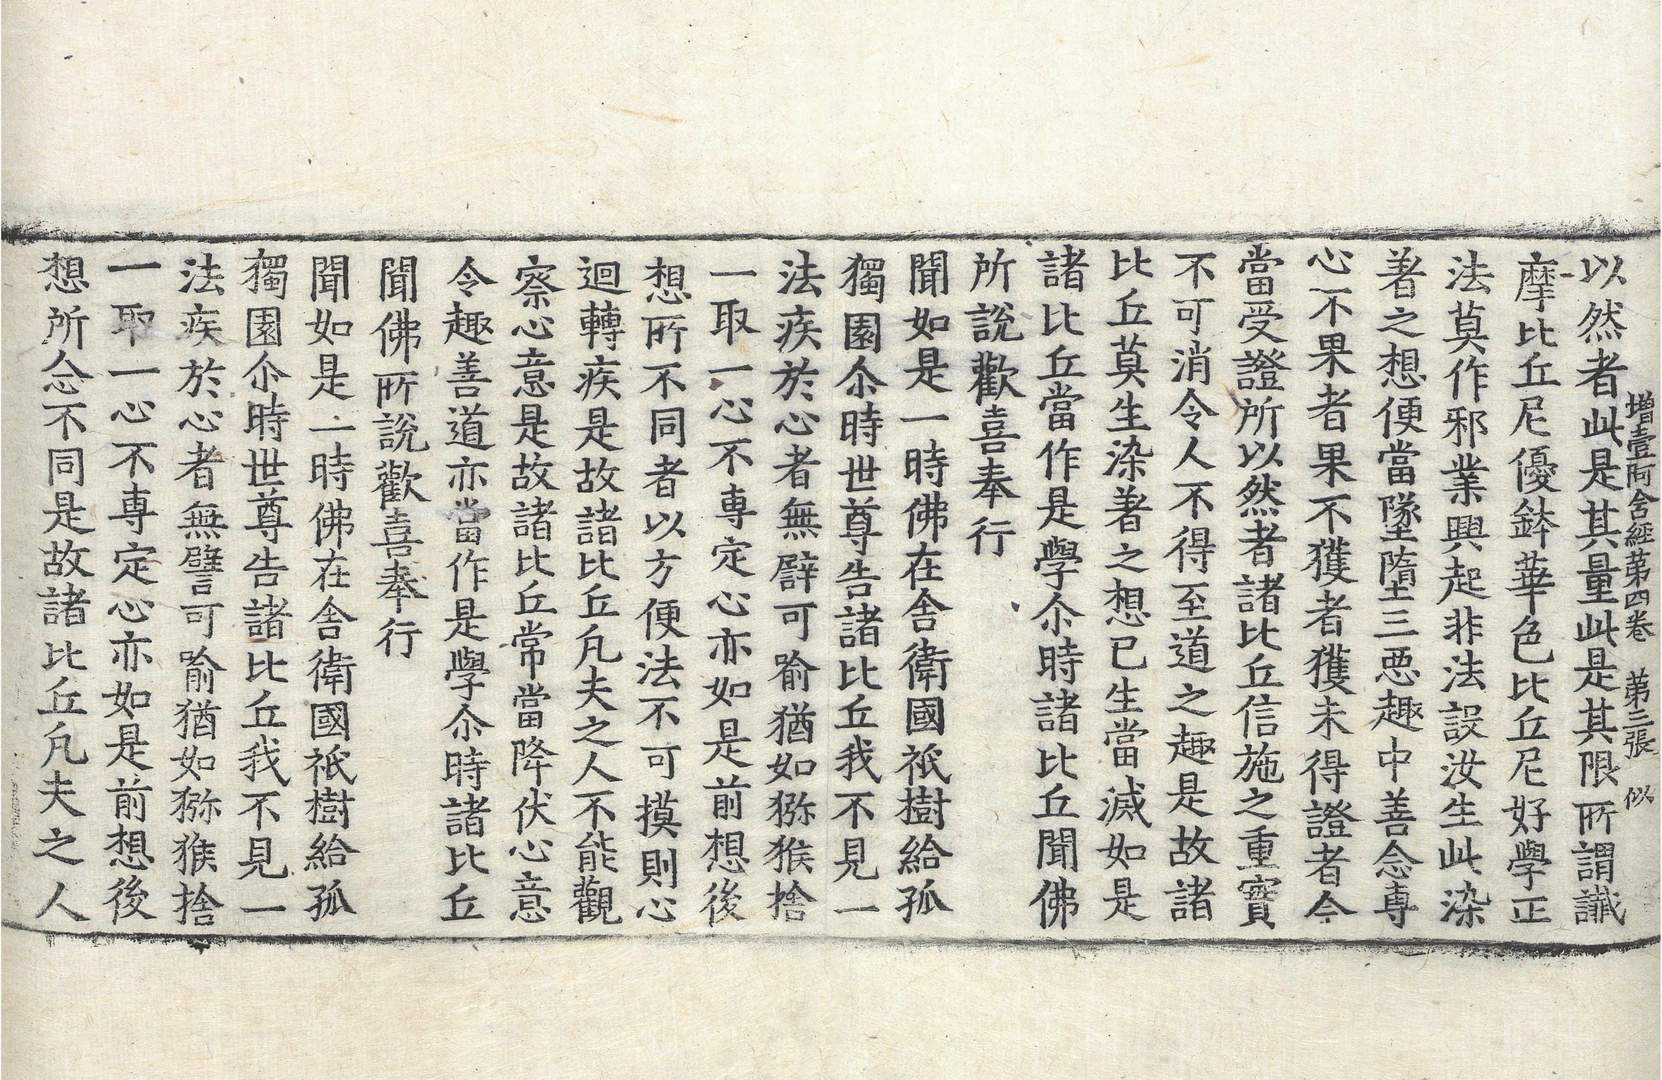 增壹阿含經第四卷 第三張 似
以然者此是其量此是其限所謂讖
摩比丘尼優鉢華色比丘尼好學正
法莫作邪業興起非法設汝生此染
著之想便當墜墮三惡趣中善念專
心不果者果不獲者獲未得證者今
當受證所以然者諸比丘信施之重實
不可消令人不得至道之趣是故諸
比丘莫生染著之想已生當滅如是
諸比丘當作是學尒時諸比丘聞佛
所說歡喜奉行
聞如是一時佛在舍衛國祇樹給孤
獨園尒時世尊告諸比丘我不見一
法疾於心者無譬可喻猶如獼猴捨
一取一心不專定心亦如是前想後
想所不同者以方便法不可摸則心
迴轉疾是故諸比丘凡夫之人不能觀
察心意是故諸比丘常當降伏心意
令趣善道亦當作是學尒時諸比丘
聞佛所說歡喜奉行
聞如是一時佛在舍衛國祇樹給孤
獨園尒時世尊告諸比丘我不見一
法疾於心者無譬可喻猶如獼猴捨
一取一心不專定心亦如是前想後
想所念不同是故諸比丘凡夫之人